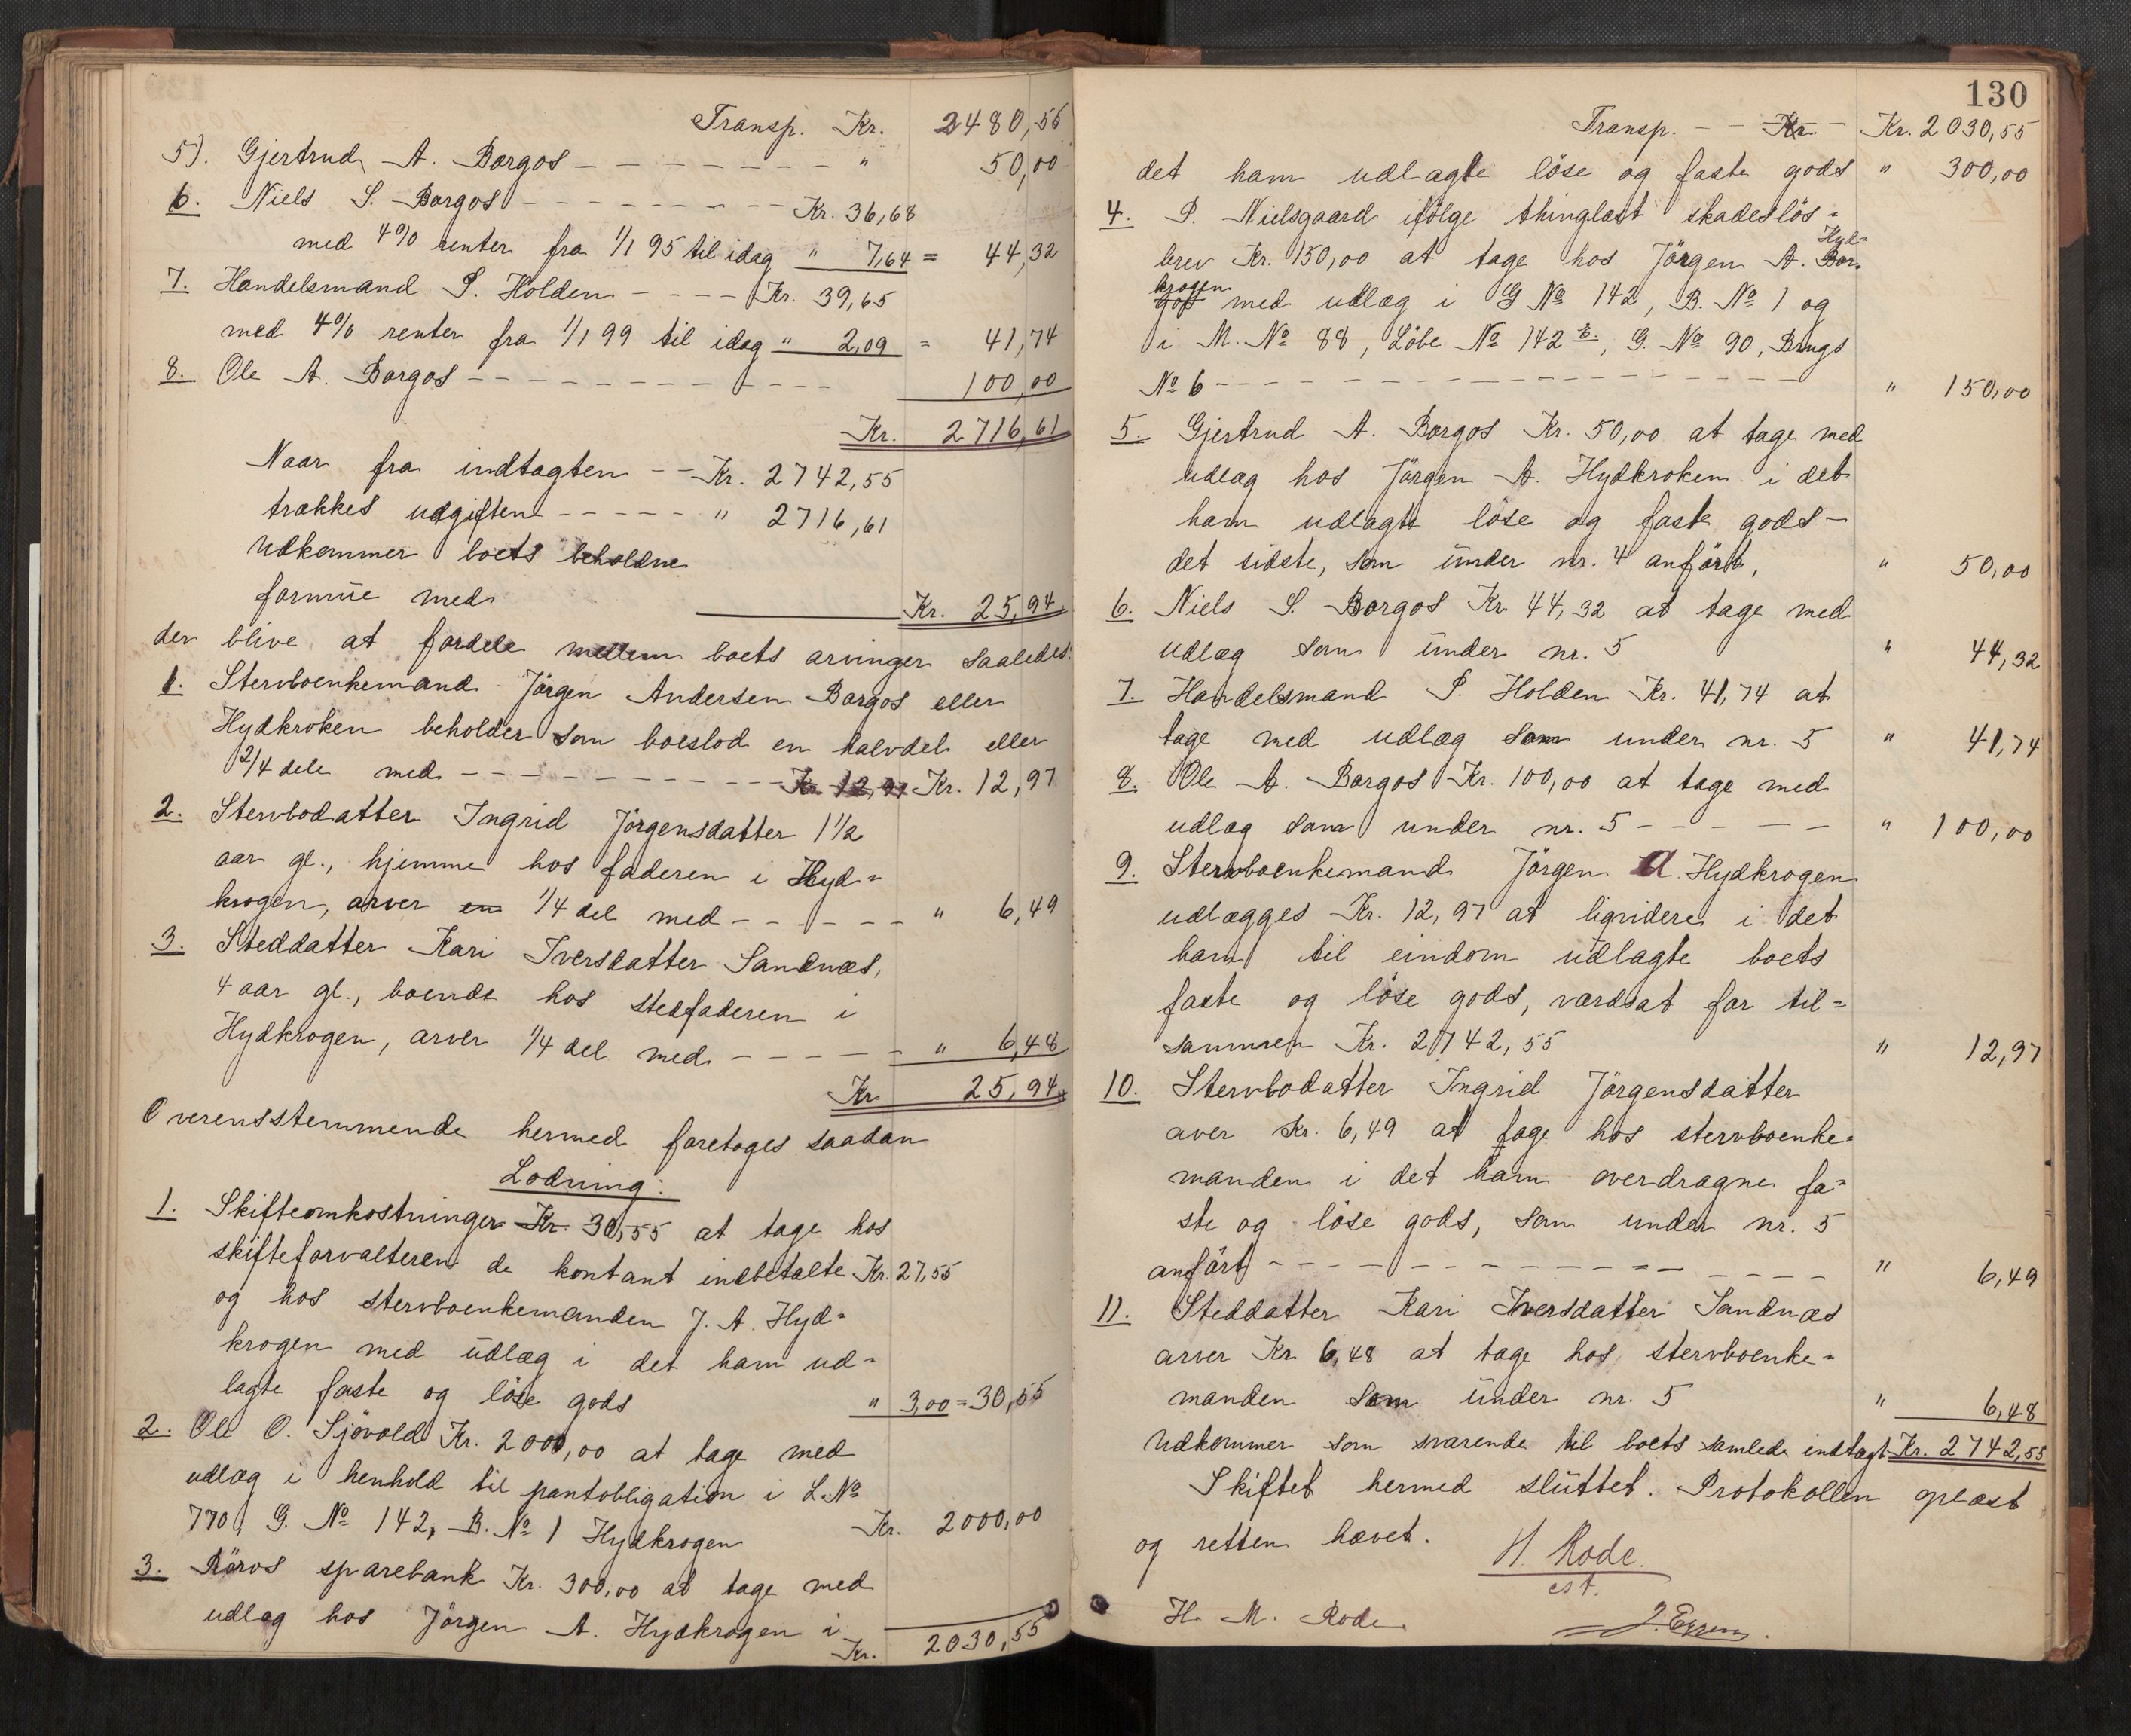 Transp. Kr. 2480,55
5). Gjertrud A. Borgos - - - - - - - " 50,00
6. Niels S. Borgos - - - - - - - - Kr. 36,68
med 4% renter fra 1/1 95 til idag " 7,64 = 44,32
7. Handelsmand P. Holden - - - - Kr. 39,65
med 4% renter fra 1/1 99 til idag " 2,09 = 41,74
8. Ole A. Borgos - - - - - - - - - - - - 100,00
Kr. 2716,61
Naar fra indtægten - - Kr. 2742,55
trækkes udgiften - - - - - " 2716,61
udkommer boets beholdne
formue med Kr. 25,94
der blive at fordele mellem boets arvinger saaledes:
1. Stervboenkemand Jörgen Andersen Borgos eller
Hydkroken beholder som boeslod en halvdel eller
2/4 dele med - - - - - - - - - - - Kr. 12,97 Kr. 12,97
2. Stervbodatter Ingrid Jörgensdatter 1 1/2
aar gl., hjemme hos faderen i Hyd=
krogen, arver en 1/4 del med - - - - - - " 6,49
3. Steddatter Kari Iversdatter Sandnæs,
4 aar gl., boende hos stedfaderen i
Hydkrogen, arver 1/4 del med - - - - - - " 6,48
Kr. 25,94
Overensstemmende hermed foretoges saadan
Lodning:
1. Skifteomkostninger Kr. 30,55 at tage hos
skifteforvalteren de kontant indbetalte Kr. 27,55
og hos stervboenkemanden J. A. Hyd=
krogen med udlæg i det ham ud=
lagte faste og löse gods " 3,00 = 30,55
2. Ole O. Sjövold Kr. 2000,00 at tage med
udlæg i henhold til pantobligation i L. No
770, G. No 142, B. No 1 Hydkrogen Kr. 2000,00
3. Röros sparebank Kr. 300,00 at tage med
udlæg hos Jörgen A. Hydkrogen i
Kr. 2030,55
130
Transp. - - Kr. - Kr. 2030,55
det ham udlagte löse og faste gods " 300,00
4. P. Nielsgaard ifölge thinglæst skadeslös=
brev Kr. 150,00 at tage hos Jörgen A. Bor= Hyd=
gos krogen med udlæg i G No 142, B. No 1 og
i M. No 88, Löbe No 142 b., G. No 90, Brugs
No 6 - - - - - - - - - - - - - - - - - - " 150,00
5. Gjertrud A. Borgos Kr. 50,00 at tage med
udlæg hos Jörgen A. Hydkroken i det
ham udlagte löse og faste gods -
det sidste, som under nr. 4 anfört, " 50,00
6. Niels S. Borgos Kr. 44,32 at tage med
udlæg som under nr. 5 " 44,32
7. Handelsmand P. Holden Kr. 41,74 at
tage med udlæg som under nr. 5 " 41,74
8. Ole A. Borgos Kr. 100,00 at tage med
udlæg som under nr. 5 - - - - - " 100,00
9. Stervboenkemand Jörgen A. Hydkrogen
udlægges Kr. 12,97 at ligvidere i det
ham til eindom udlagte boets
faste og löse gods, værdsat for til=
sammen Kr. 2742,55 " 12,97
10. Stervbodatter Ingrid Jörgensdatter
aver Kr. 6,49 at tage hos stervboenke=
manden i det ham overdragne fa=
ste og löse gods, som under nr. 5
anfört - - - - - - - - - - - - - - " 6,49
11. Steddatter Kari Iversdatter Sandnæs
arver Kr 6,48 at tage hos stervboenke=
manden som under nr. 5 " 6,48
Udkommer som svarende til boets samlede indtægt Kr. 2742,55
Skiftet hermed sluttet. Protokollen oplæst
og retten hævet.
H. Rode.
cst.
H. M. Rode. J. Eggen.